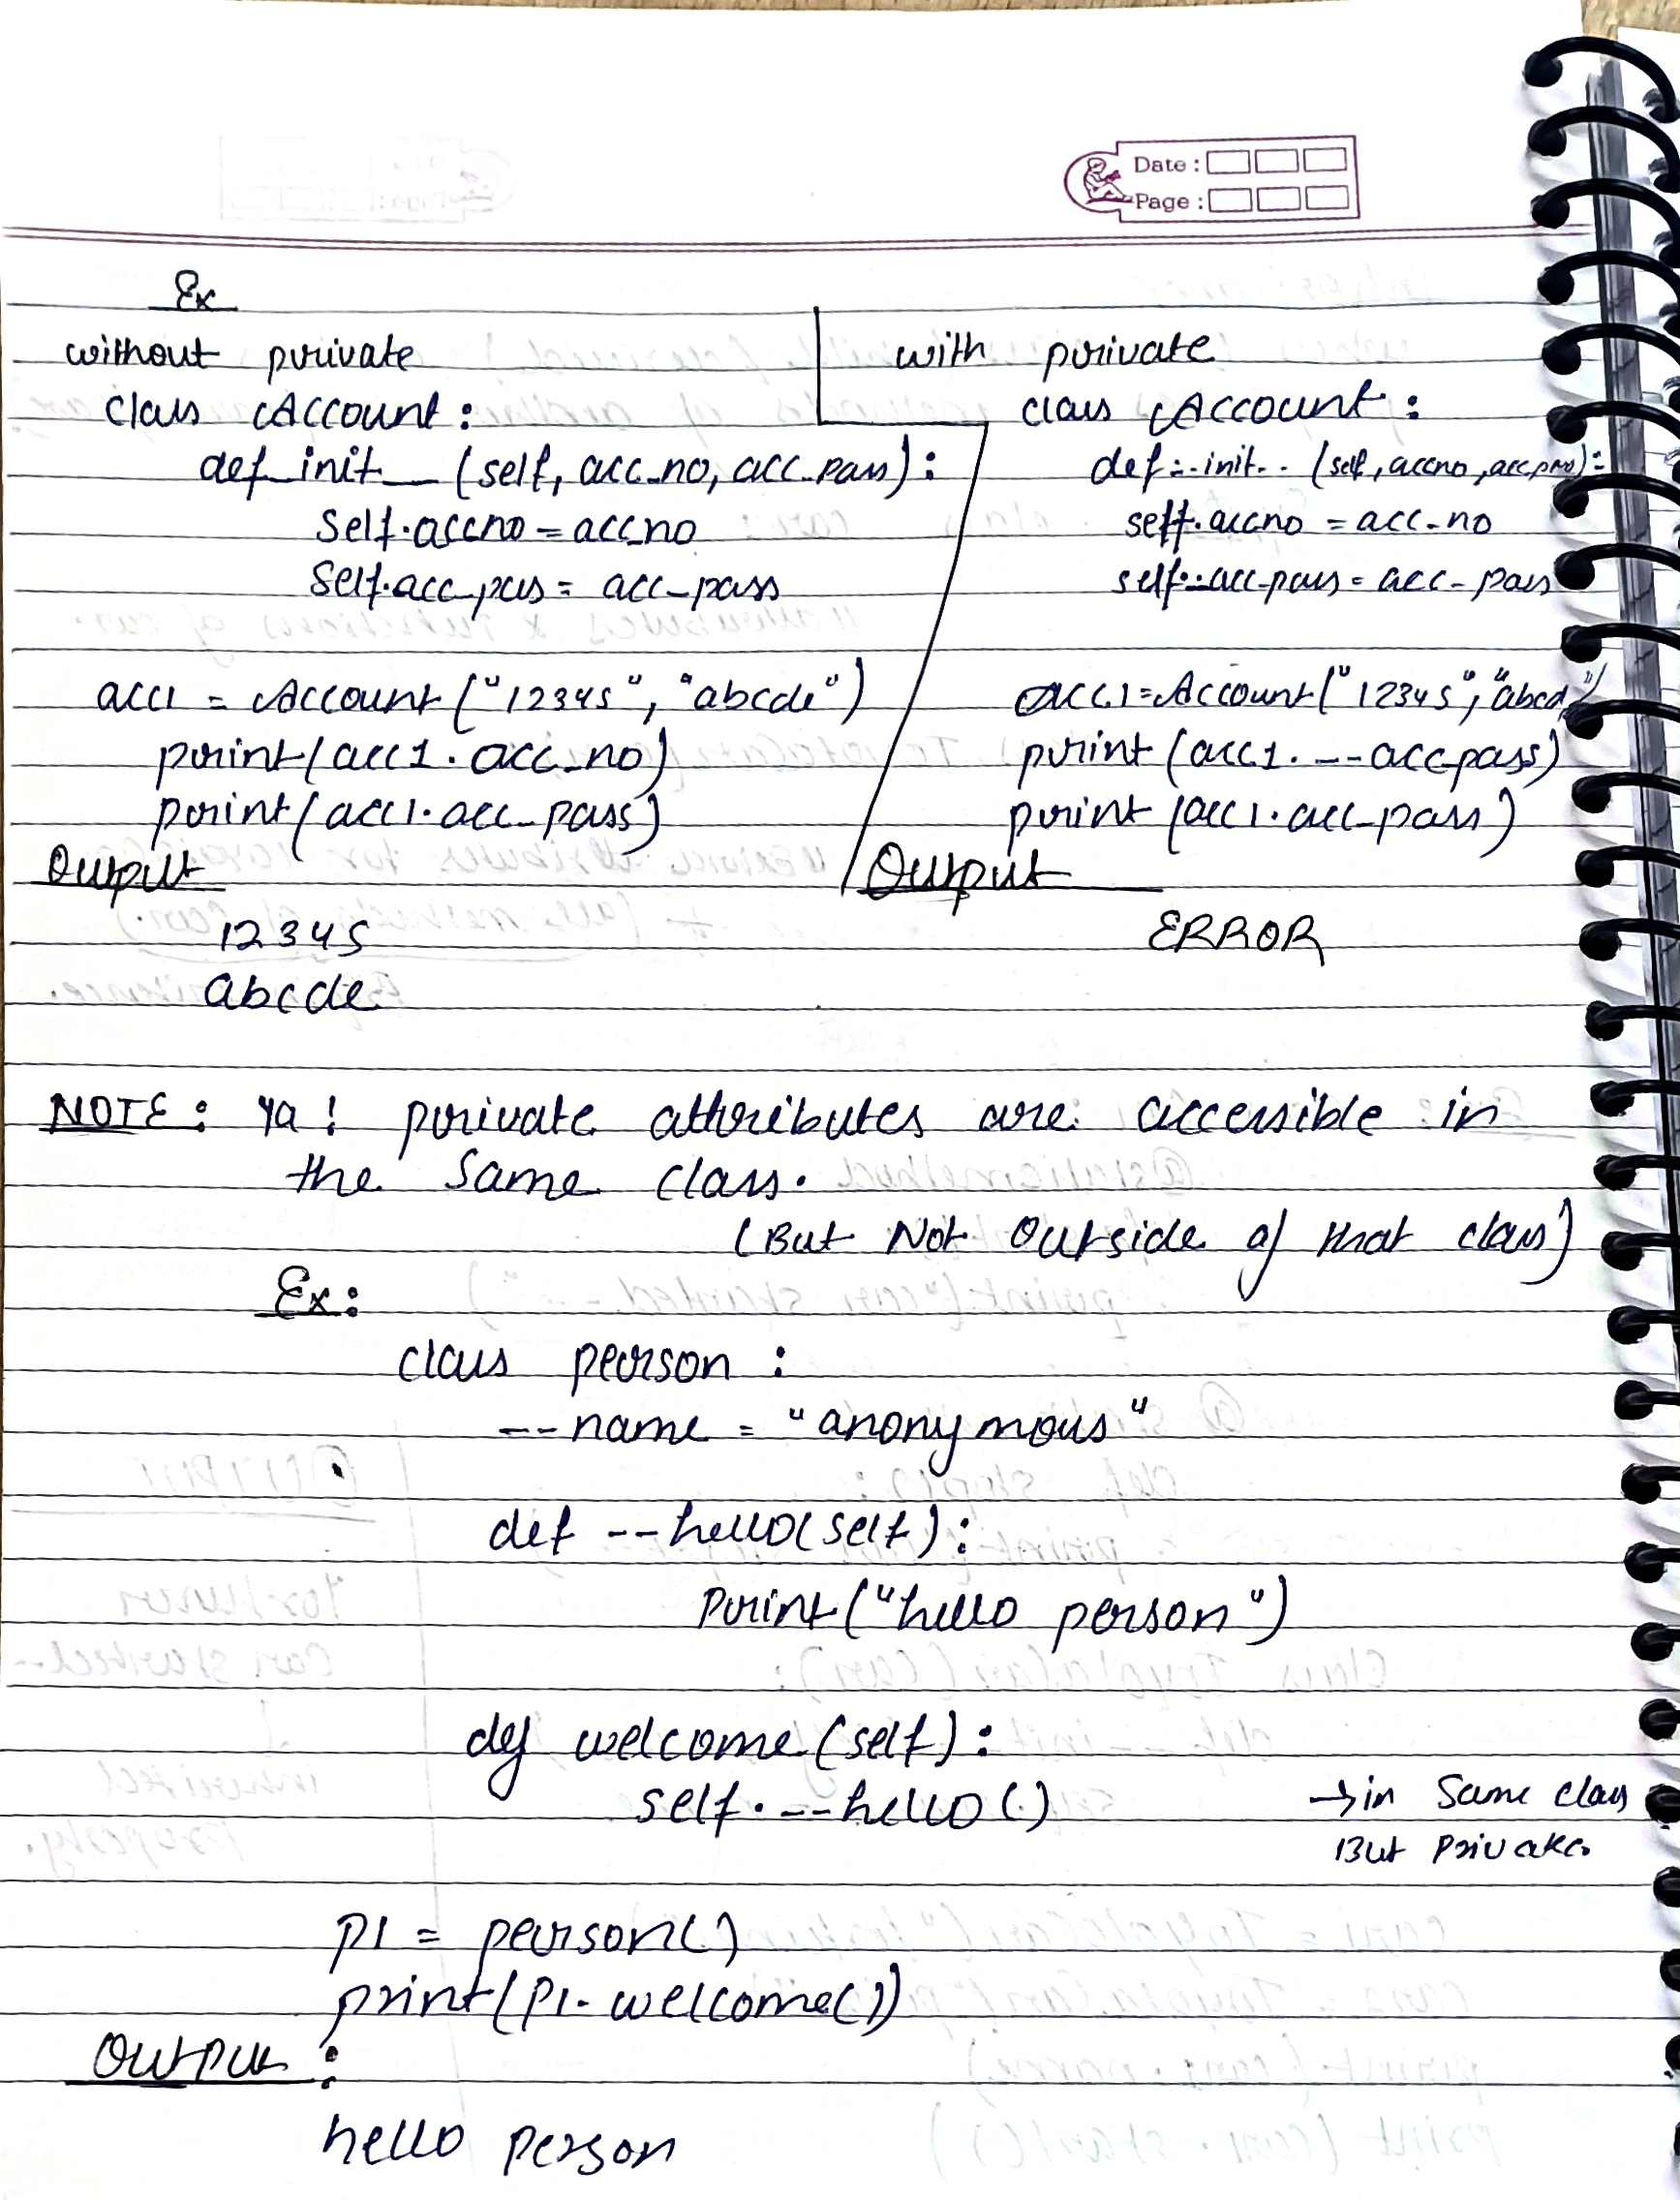 Date :
Page :
Ex
without private
class Account :
def_init__ (self, acc_no, acc_pass) :
self.accno = acc_no
self.acc_pass = acc_pass
acc1 = Account ("12345", "abcde")
print(acc1.acc_no)
print(acc1.acc_pass)
Output
12345
abcde
with private
class Account :
def __init__ (self, accno, acc_pass) :
self.accno = acc_no
self.__acc_pass = acc_pass
acc1 = Account("12345", "abcd")
print (acc1.__accpass)
print (acc1.acc_pass)
Output
ERROR
NOTE : Ya ! private attributes are accessible in
the same class.
(But Not Outside of that class)
Ex :
class person :
__name = "anonymous"
def __hello(self) :
Print("hello person")
def welcome (self) :
self.__hello () → in same class
But Private.
P1 = person()
print(P1.welcome())
Output :
hello person